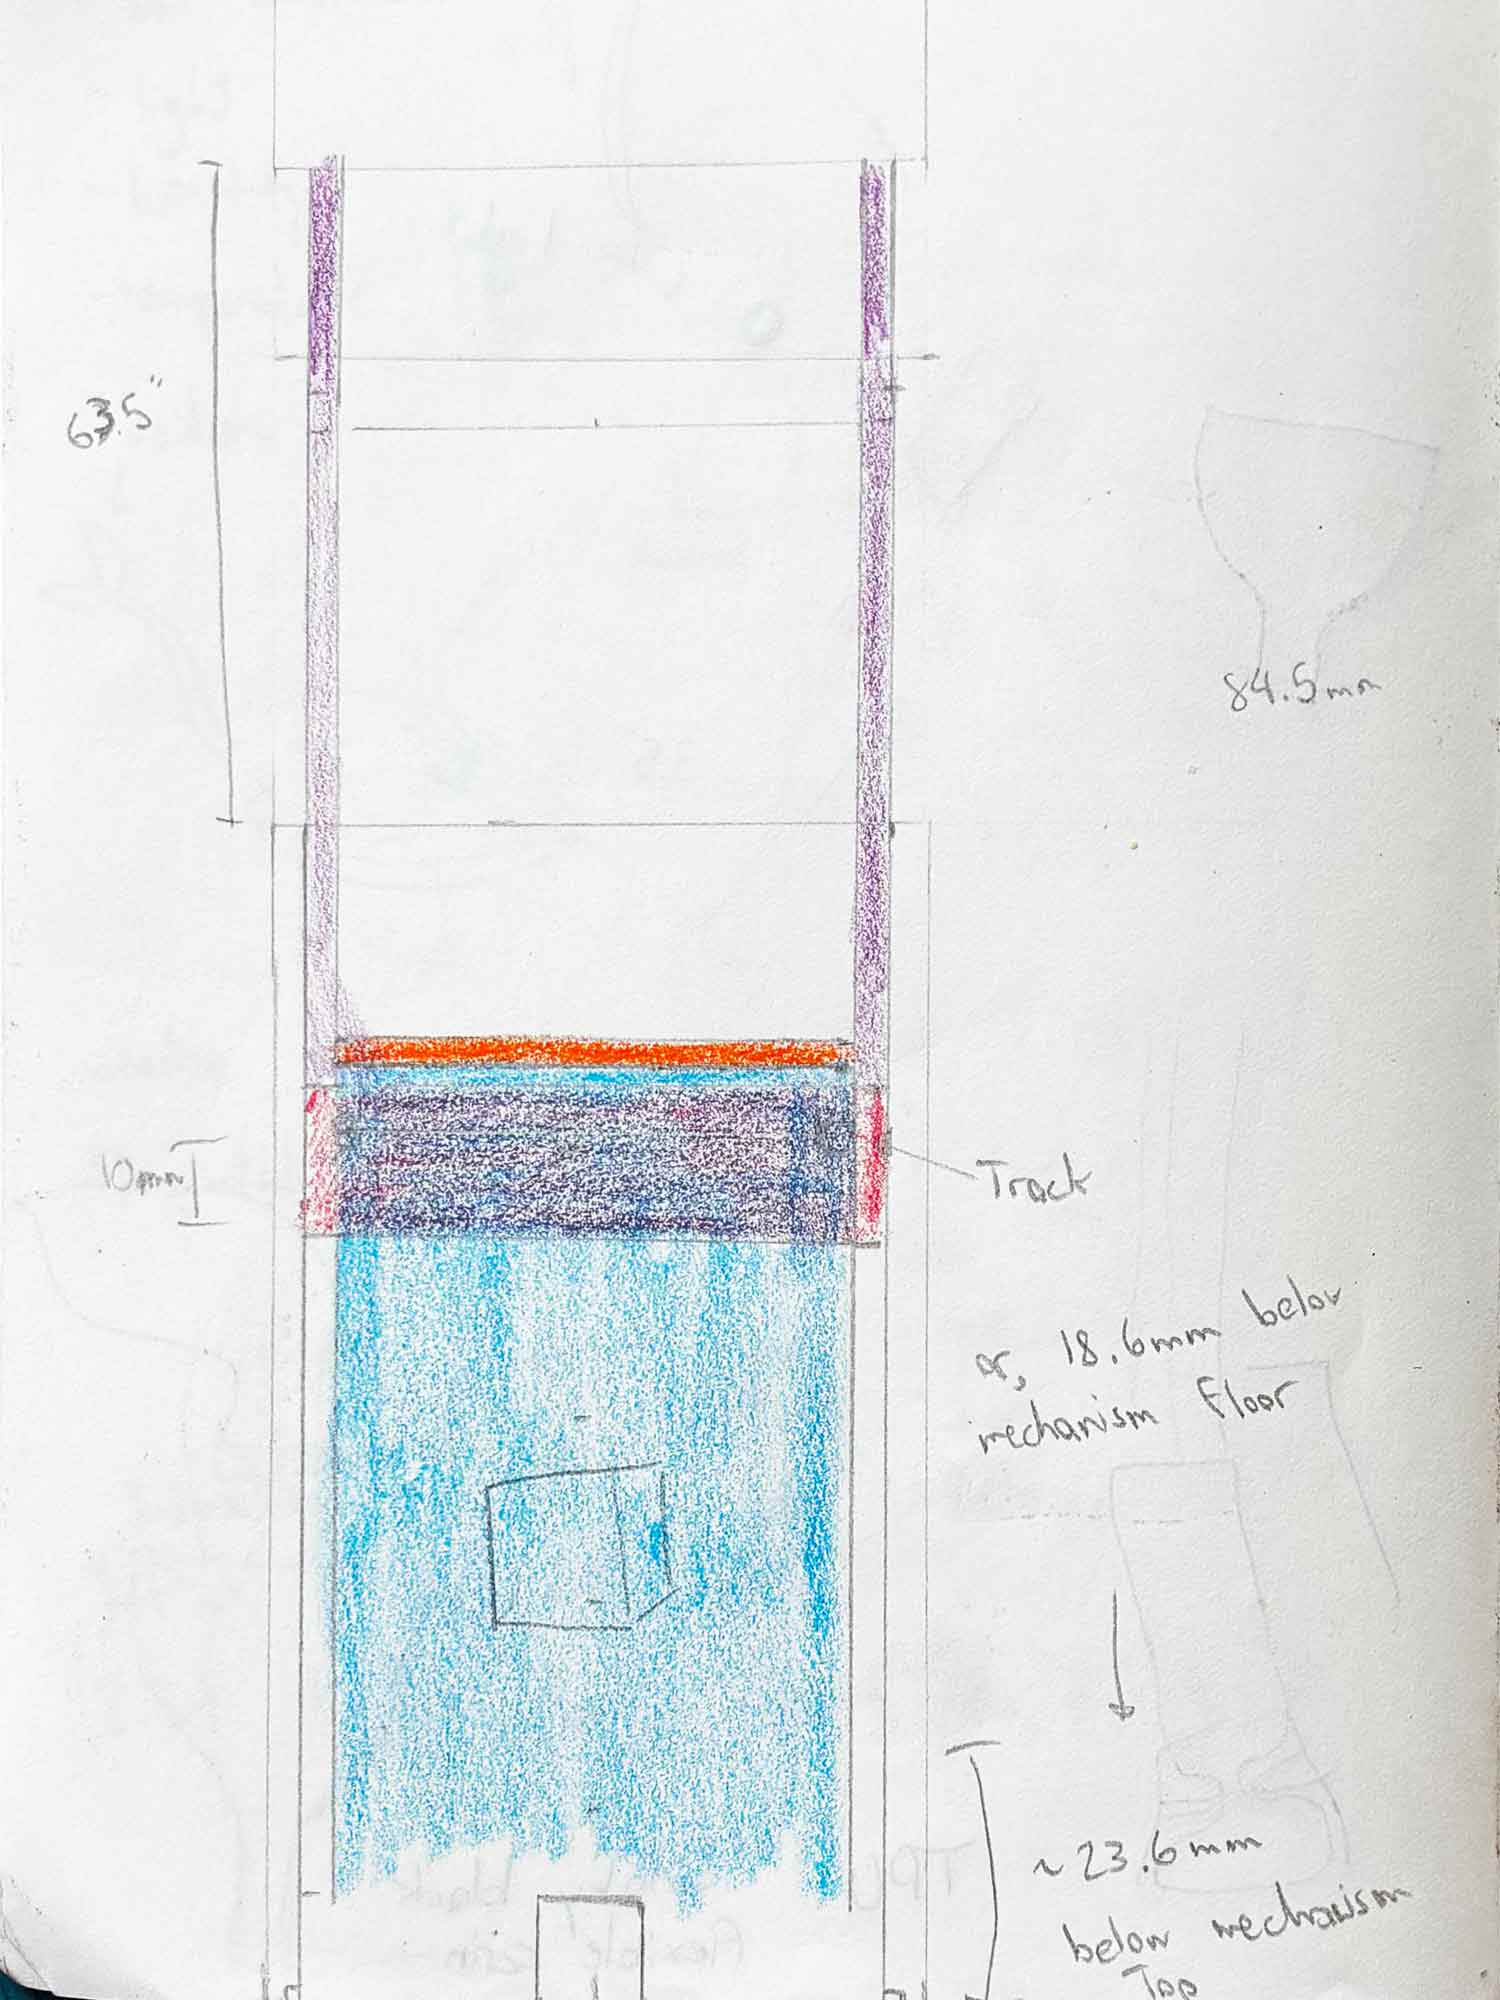 63.5"
84.5mm
10mm
Track
or, 18.6mm below
mechanism floor
~23.6mm
below mechanism
Top